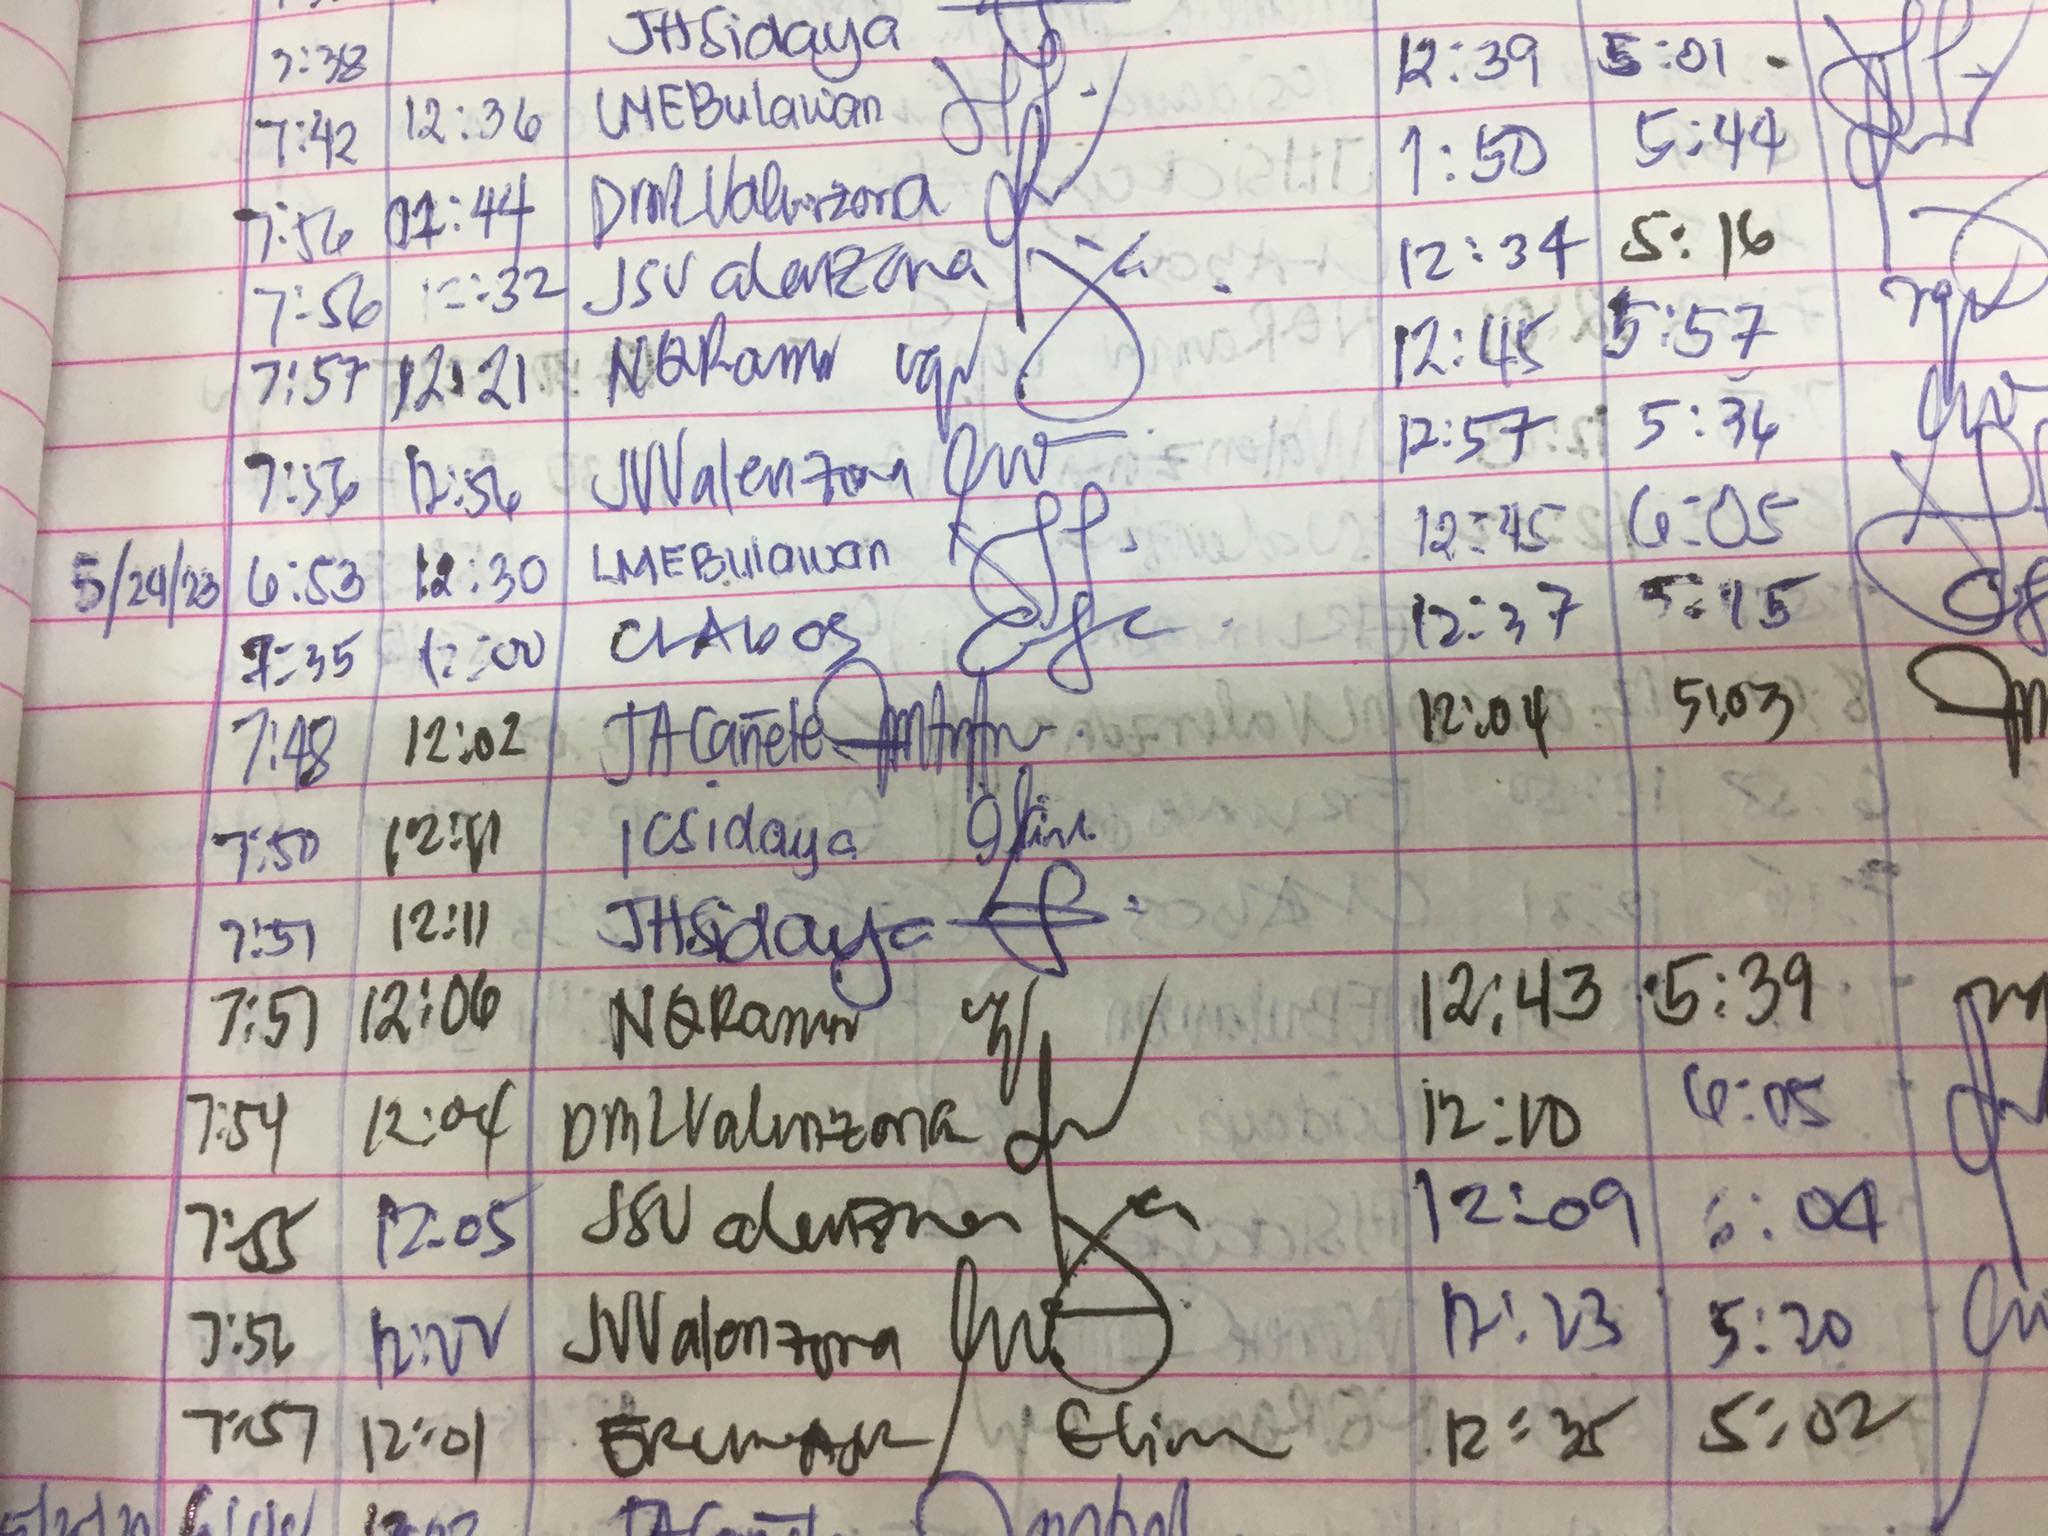 7:38 JHSidaya
7:42 12:36 LMEBulawan 12:39 5:01
7:56 DMLValenzona 1:50 5:44
7:56 12:32 JSValenzona 12:34 5:16
7:57 12:21 NQRamir 12:45 5:57
7:56 12:56 JVValenzona 12:57 5:36
5/24/23 6:53 12:30 LMEBulawan 12:45 6:05
7:35 12:00 CLAbos 12:37 5:15
7:48 12:02 JACañete 12:04 5:03
7:50 12:11 ICSidaya
7:51 12:11 JHSidaya
7:51 12:06 NQRamir 12:43 5:39
7:54 12:04 DMLValenzona 12:10 6:05
7:55 12:05 JSValenzona 12:09 6:04
7:56 12:22 JVValenzona 12:23 5:20
7:57 12:01 12:35 5:02
JACañete